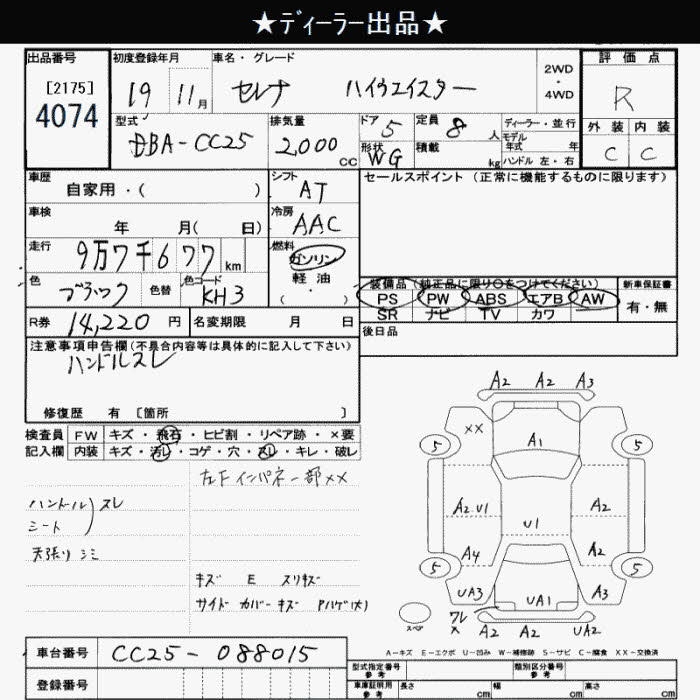 ★ディーラー出品★
出品番号 初度登録年月 車名・グレード 2WD・4WD 評価点
[2175]
4074
19 11月 セレナ ハイウエイスター R
型式 DBA-CC25 排気量 2,000 CC ドア 5 定員 8 人 ディーラー・並行
形状 WG 積載 kg モデル年式 年 ハンドル 左・右
外装 内装
C C
車歴 自家用・( ) シフト AT セールスポイント (正常に機能するものに限ります)
車検 年 月( 日) 冷房 AAC
走行 9万7千677 km 燃料 ガソリン 軽油 ( ・ )
色 ブラック 色替 色コード KH3
装備品 (純正品に限り○をつけてください) 新車保証書
PS PW ABS エアB AW 有・無
SR ナビ TV カワ
R券 14,220 円 名変期限 月 日 後日品
注意事項申告欄(不具合内容等は具体的に記入して下さい)
ハンドルスレ
修復歴 有 [箇所 ]
検査員 FW キズ・飛石・ヒビ割・リペア跡・×要
記入欄 内装 キズ・汚レ・コゲ・穴・スレ・キレ・破レ
左下インパネ一部××
ハンドル スレ
シート
天張りシミ
キズ E スリキズ
サイドカバーキズ Pハゲ(大)
A2 A2 A3
XX A1
5 5
A2 U1 A2
U1
A4 A2
5 5
UA3 UA1 A3
スペア ワレ × A2 A2 UA2
A-キズ E-エクボ U-凹み W-補修跡 S-サビ C-腐食 XX-交換済
車台番号 CC25-088015
登録番号
型式指定番号 参考 類別区分番号 参考
車庫証明用 参考 長さ cm 幅 cm 高さ cm